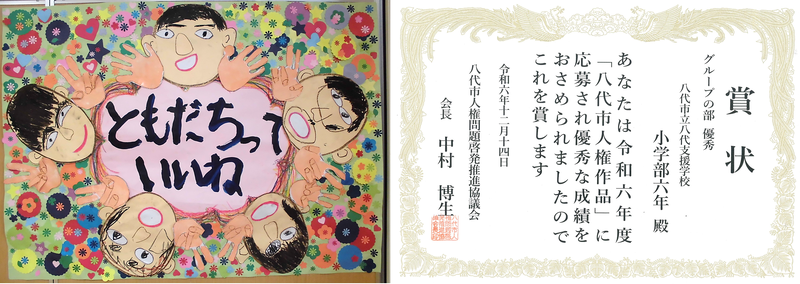 ともだちって
いいね
賞状
グループの部 優秀
八代市立八代支援学校
小学部六年 殿
あなたは令和六年度
「八代市人権作品」に
応募され優秀な成績を
おさめられましたので
これを賞します
令和六年十二月十四日
八代市人権問題啓発推進協議会
会長 中村 博生